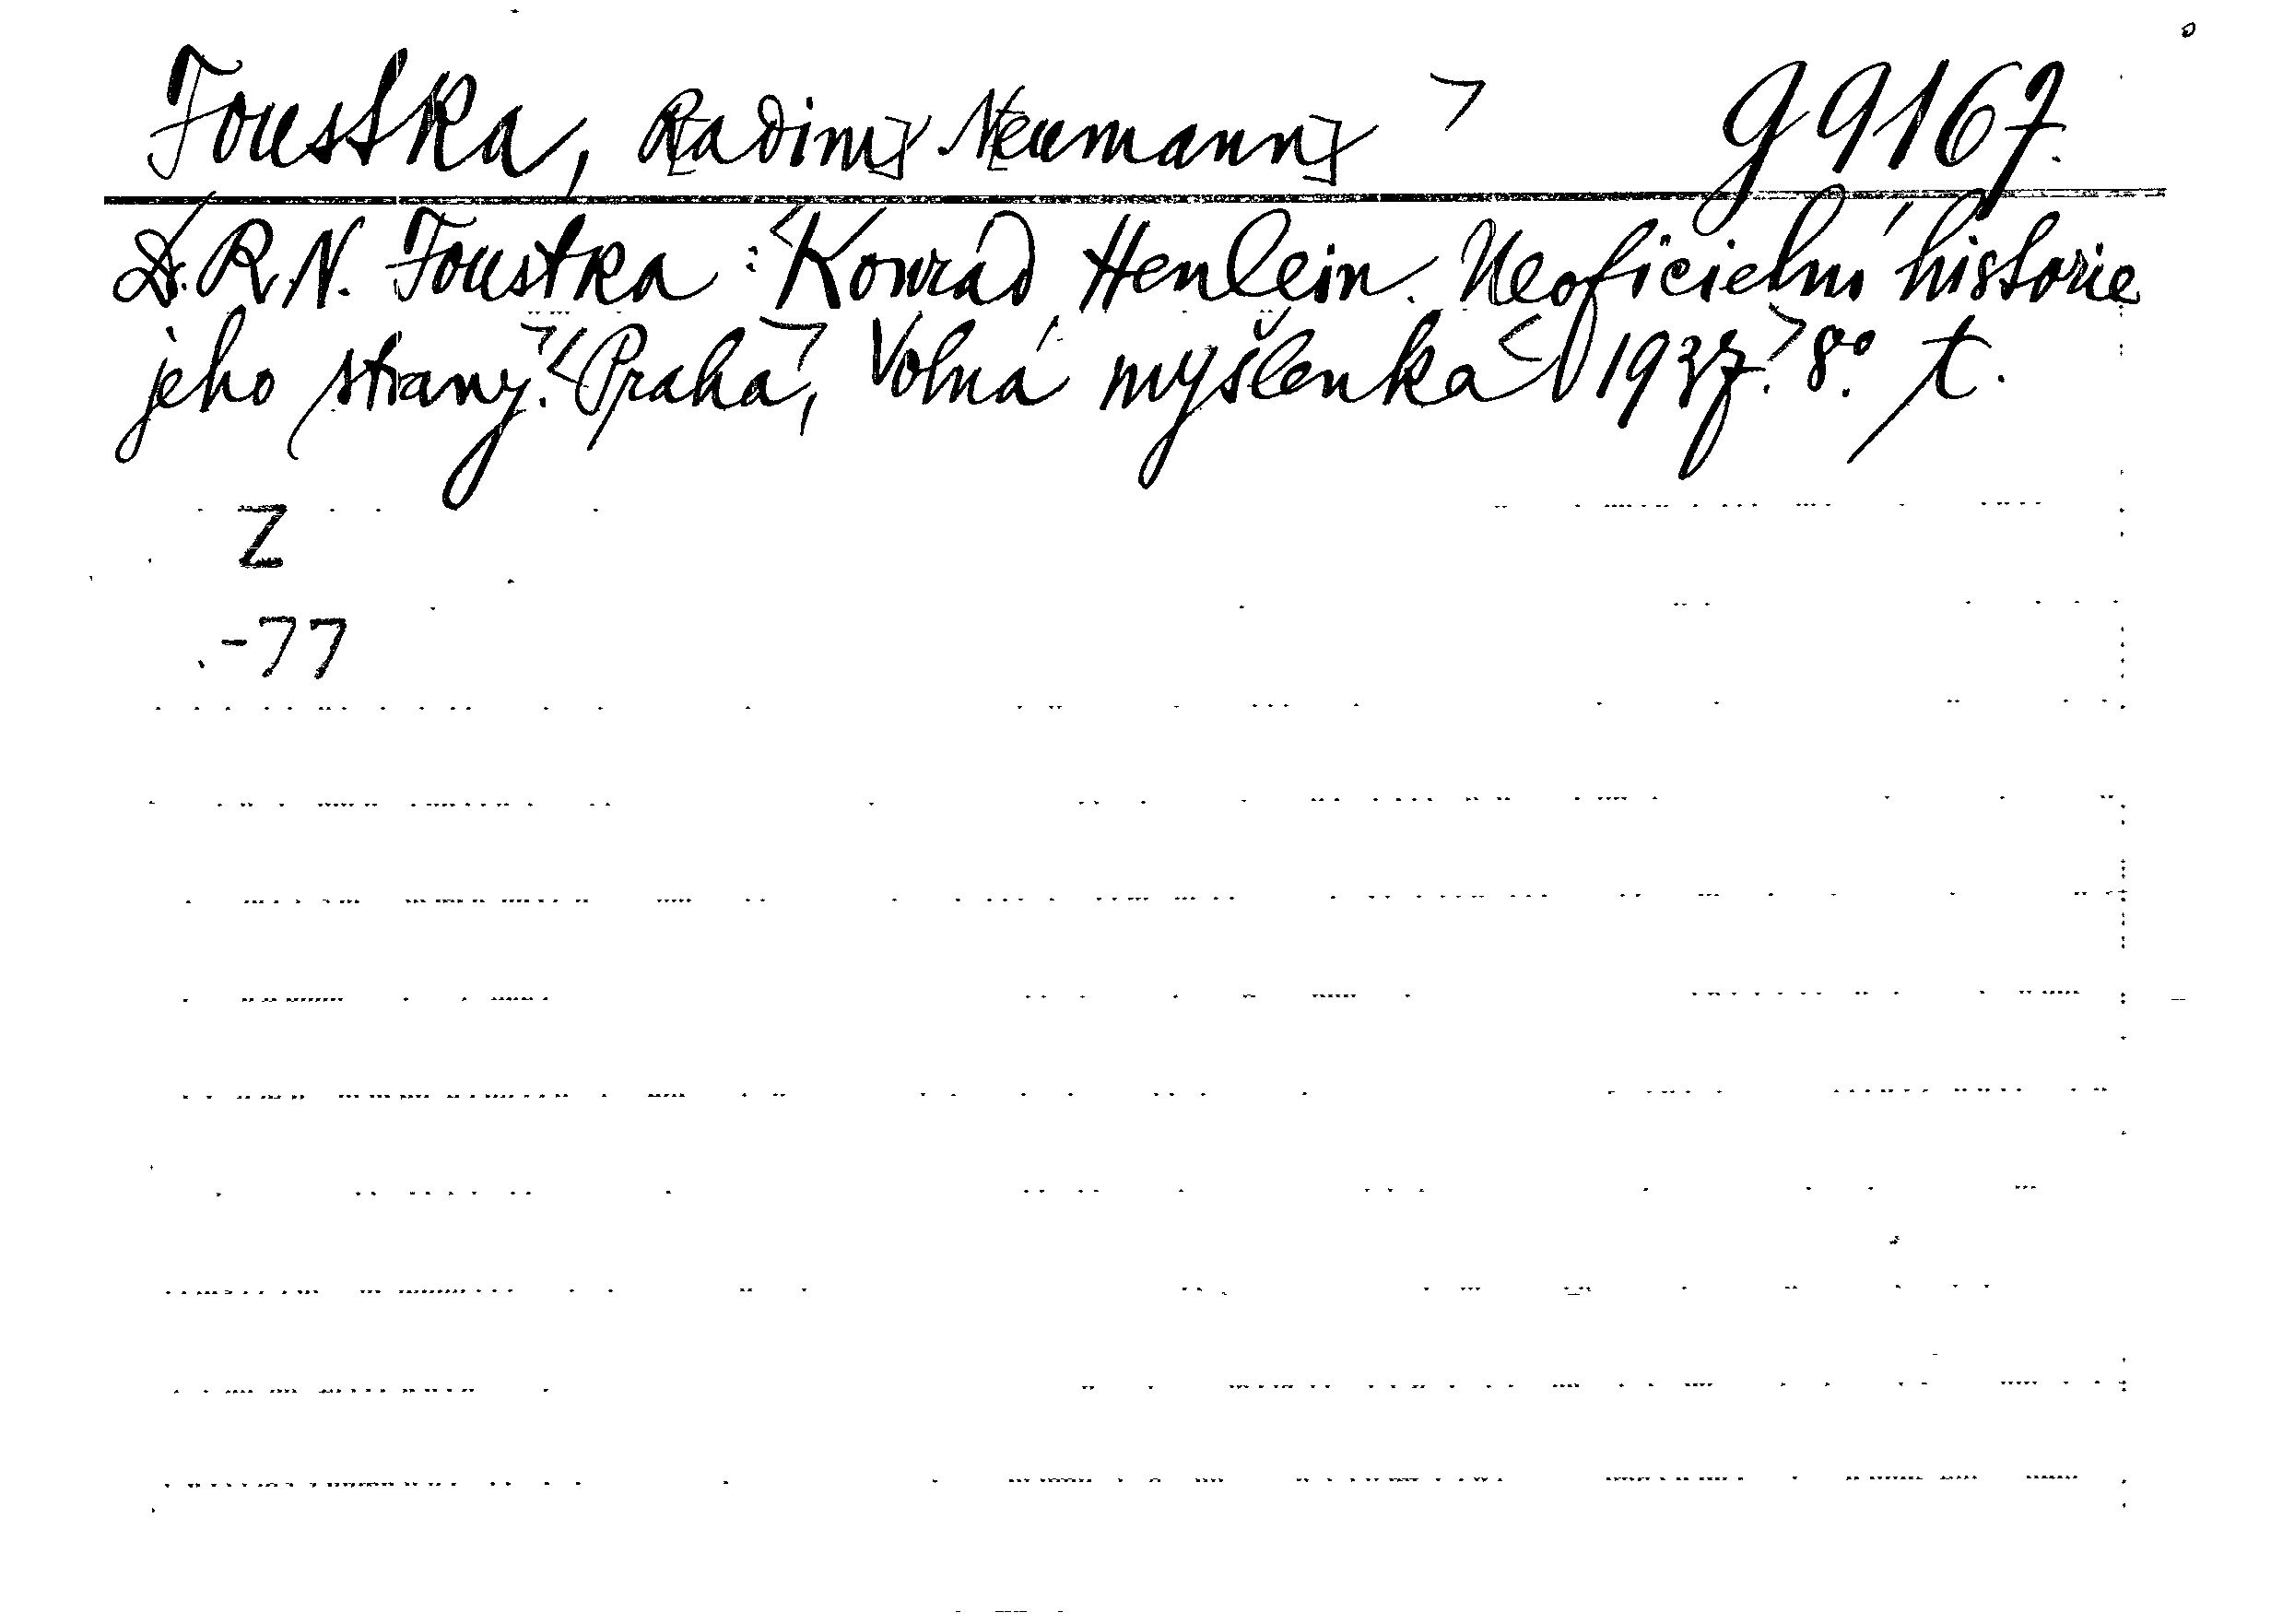 Foustka, R[adim] N[eumann] > g 9167.
Dr. R. N. Foustka: <Konrád Henlein. Neoficielní historie
jeho strany.> <Praha>, Volná myšlenka <1937.> 8° t.
Z
-77